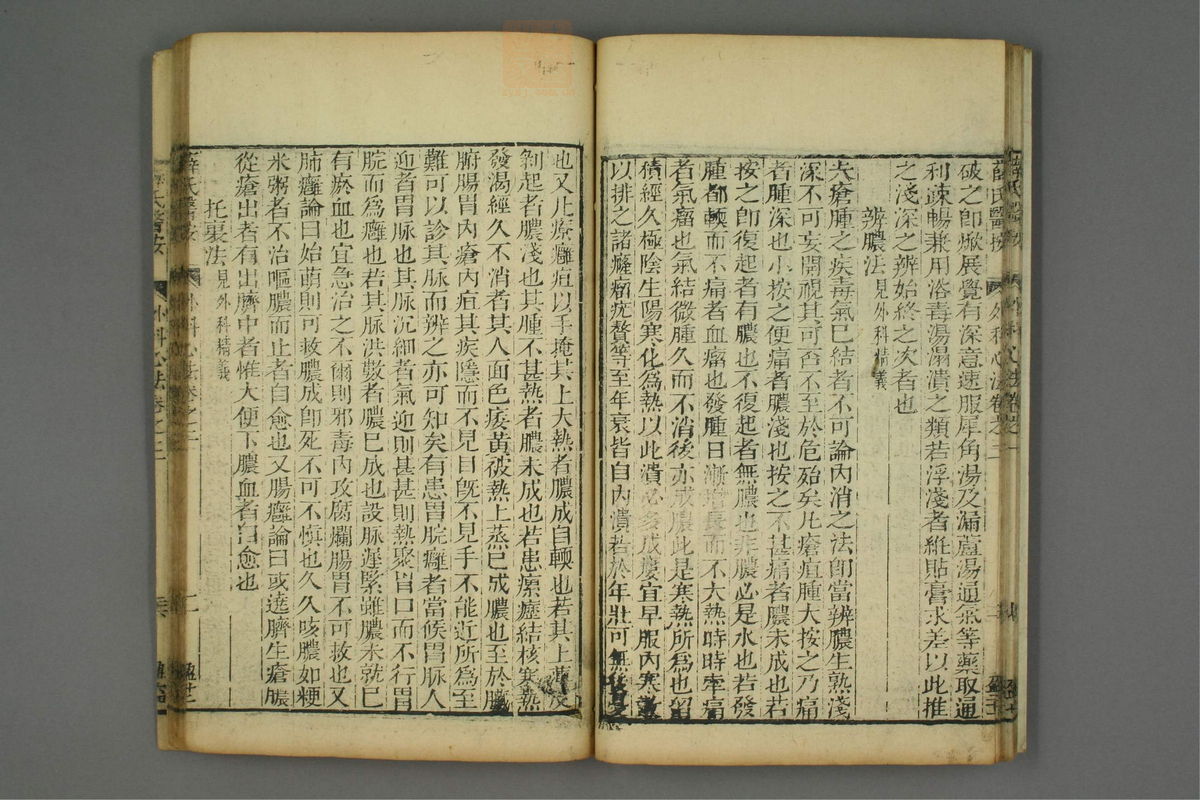 薛氏醫按 外科心法卷之二
破之卽㿉展覺有深意速服犀角湯及漏蘆湯通氣等藥取通
利疎暢兼用浴毒湯溻漬之類若浮淺者雖貼膏求差以此推
之淺深之辨始終之次者也
辨膿法 見外科精義
夫瘡腫之疾毒氣巳結者不可論內消之法卽當辨膿生熟淺
深不可妄開視其可否不至於危殆矣凡瘡疽腫大按之乃痛
者腫深也小按之便痛者膿淺也按之不甚痛者膿未成也若
按之卽復起者有膿也不復起者無膿也非膿必是水也若發
腫都輭而不痛者血瘤也發腫日漸增長而不大熱時時牽痛
者氣瘤也氣結微腫久而不消後亦成膿此是寒熱所爲也留
積經久極陰生陽寒化爲熱以此潰必多成瘻宜早服內寒散
以排之諸癃瘤疣贅等至年衰皆自內潰若於年壯可無後
也又凡療癰疽以手掩其上大熱者膿成自輭也若其上薄皮
剝起者膿淺也其腫不甚熱者膿未成也若患瘰癧結核寒熱
發渴經久不消者其人面色痿黃被熱上蒸巳成膿也至於臟
腑腸胃內瘡內疽其疾隱而不見目旣不見手不能近所爲至
難可以診其脉而辨之亦可知矣有患胃脘癰者當候胃脉人
迎者胃脉也其脉沉細者氣迎則甚甚則熱聚胃口而不行胃
脘而爲癰也若其脉洪數者膿巳成也設脉遲緊雖膿未就巳
有瘀血也宜急治之不爾則邪毒內攻腐爛腸胃不可救也又
肺癰論曰始萌則可救膿成卽死不可不愼也久久咳膿如粳
米粥者不治嘔膿而止者自愈也又腸癰論曰或遶臍生瘡膿
從瘡出者有出臍中者惟大便下膿血者自愈也
托裏法 見外科精義
薛氏醫按 外科心法卷之二